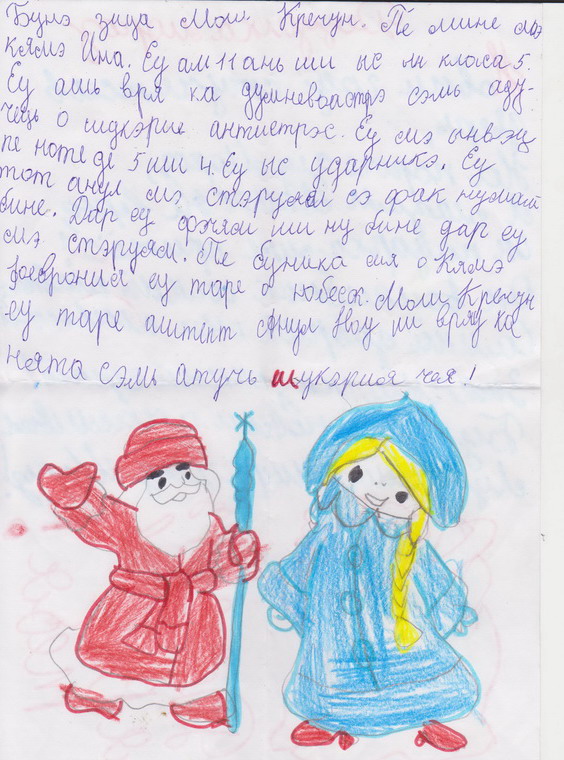 Бунэ зица Мош Кречун. Пе мине мэ
кямэ Ина. Еу ам 11 ань ши ыс ын класа 5.
Еу ашь вря ка думневоастрэ сэмь аду-
чець о шукэрие антистрэс. Еу мэ ынвэц
пе ноте де 5 ши 4. Еу ыс ударникэ. Еу
тот анул мэ стэруям сэ фак нумай
бине. Дар еу фэчям ши ну бине дар еу
мэ стэруям. Пе буника мя о кямэ
Февронии еу таре о юбеск. Мош Кречун
еу таре аштепт Анул Ноу ши вряу ка
неята сэмь атучь шукэрия чея!